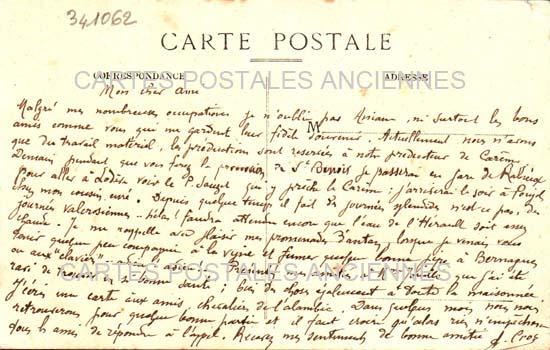 341062
CARTE POSTALE
CORRESPONDANCE
ADRESSE
CARTES POSTALES ANCIENNES
M
Mon cher ami
Malgré mes nombreuses occupations je n'oublie pas ni surtout les bons
amis comme vous que me gardent leur fidèle souvenir. Actuellement nous n'avons
que du travail matériel, les prédications sont réservées à notre prédicateur de Carême
Demain pendant que vous ferez la promenade de St Benoit je passerai en gare de Rabieux
pour aller à Lodève voir le P. qui y prêche le Carême; j'arriverai le soir à
chez mon cousin, curé. Depuis quelque temps il fait des journées splendides n'est-ce pas, des
journées hélas! faudra attendre encore que l'eau de l'Hérault soit assez
chaude. Je me rappelle avec plaisir mes promenades d'antan, lorsque je venais vous
tenir quelque peu compagnie à la vigne et fumer quelque bonne pipe à Bernagues
ou aux
CARTES POSTALES ANCIENNES
ravi de bonne santé bien de choses également à toute la maisonnée.
J'écris une carte aux amis, chevaliers de l'alambic. Dans quelques mois nous nous
retrouverons pour quelque bonne partie et il faut croire qu'alors rien n'empêchera
tous les amis de répondre à l'appel. Recevez mes sentiments de bonne amitié